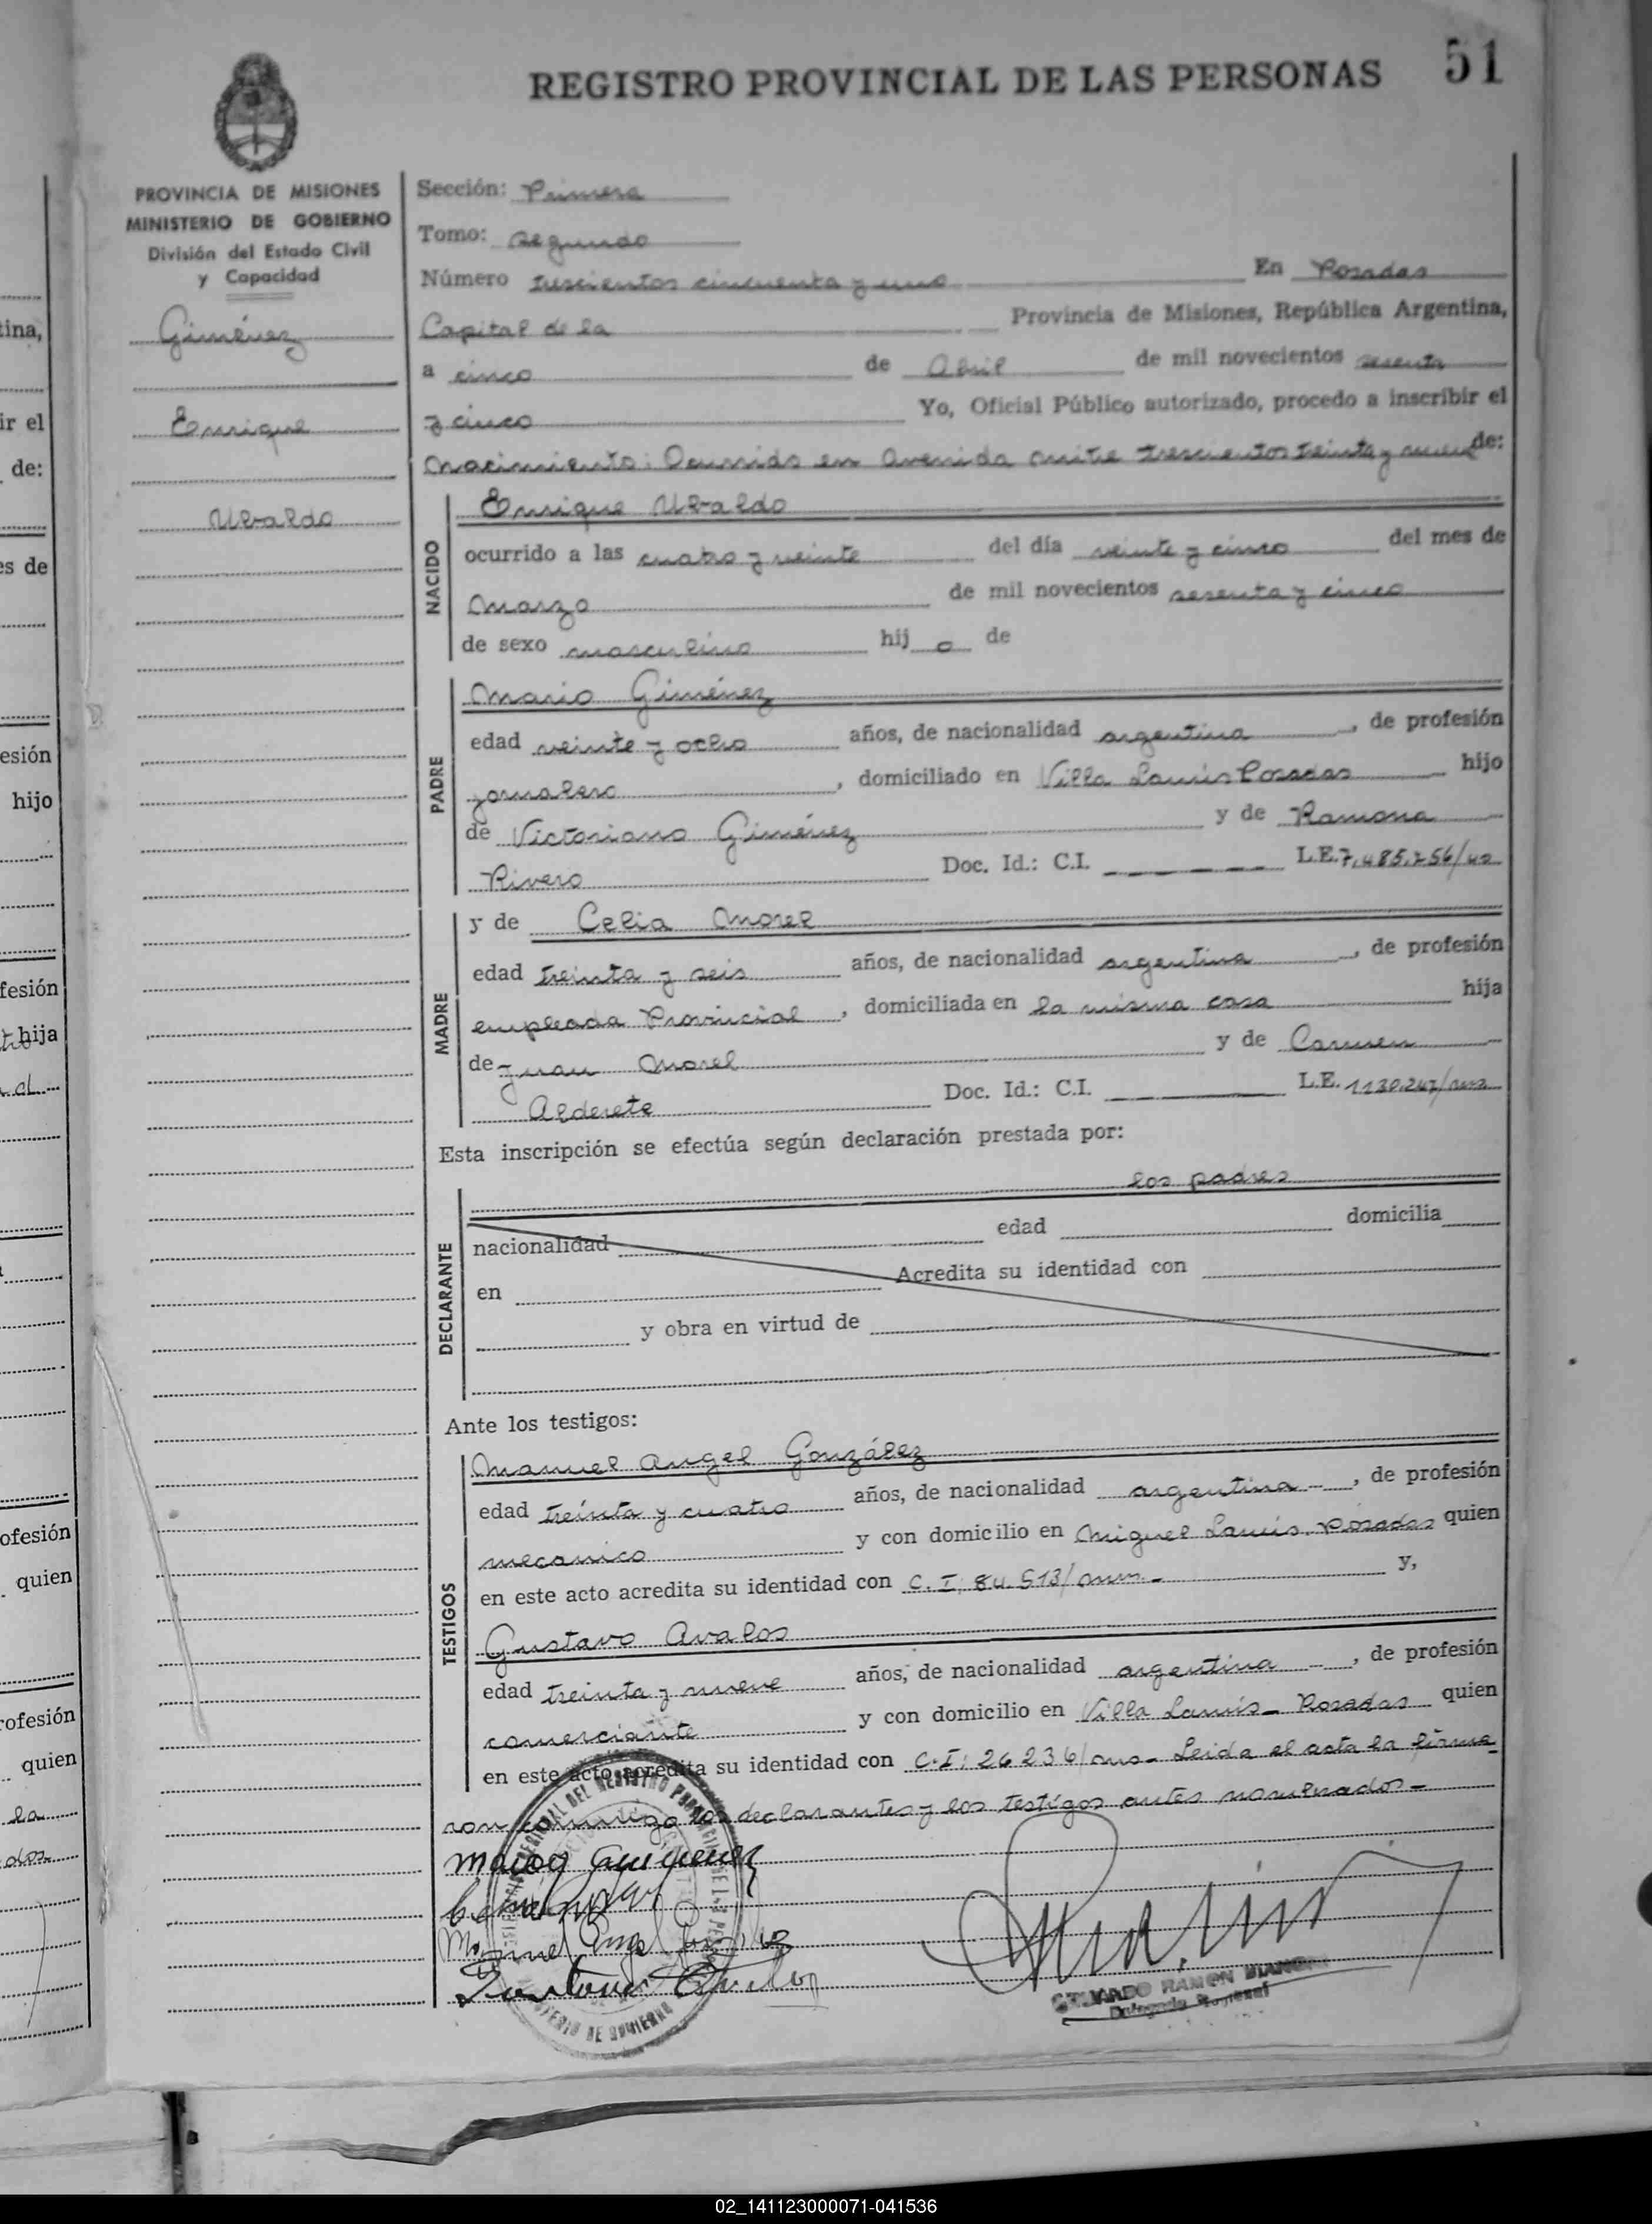 REGISTRO PROVINCIAL DE LAS PERSONAS 51
PROVINCIA DE MISIONES
MINISTERIO DE GOBIERNO
División del Estado Civil
y Capacidad
Giménez
Enrique
Ubaldo
Sección: Primera
Tomo: Segundo
Número trescientos cincuenta y uno En Posadas
Capital de la Provincia de Misiones, República Argentina,
a cinco de Abril de mil novecientos sesenta
y cinco Yo, Oficial Público autorizado, procedo a inscribir el
Nacimiento: Ocurrido en Avenida Mitre trescientos treinta y nueve de:
NACIDO
Enrique Ubaldo
ocurrido a las cuatro y veinte del día veinte y cinco del mes de
Marzo de mil novecientos sesenta y cinco
de sexo masculino hij o de
PADRE
Mario Giménez
edad veinte y ocho años, de nacionalidad argentina, de profesión
jornalero, domiciliado en Villa Lanús Posadas hijo
de Victoriano Giménez y de Ramona
Rivero Doc. Id.: C.I. L.E. 7.485.256/
MADRE
y de Celia Morel
edad treinta y seis años, de nacionalidad argentina, de profesión
empleada Provincial, domiciliada en la misma casa hija
de Juan Morel y de Carmen
Alderete Doc. Id.: C.I. L.E. 1130.247/
Esta inscripción se efectúa según declaración prestada por:
los padres
DECLARANTE
nacionalidad edad domicilia
en Acredita su identidad con
y obra en virtud de
Ante los testigos:
TESTIGOS
Manuel Angel González
edad treinta y cuatro años, de nacionalidad argentina -, de profesión
mecanico y con domicilio en Miguel Lanús. Posadas quien
en este acto acredita su identidad con C.I. 84.513/ y,
Gustavo Avalos
edad treinta y nueve años, de nacionalidad argentina -, de profesión
comerciante y con domicilio en Villa Lanús - Posadas quien
en este acto acredita su identidad con C.I: 26236/ - Leida el acta la firma
con conmigo los declarantes y los testigos antes nombrados -
EDUARDO RAMON
Delegado Regional
MINISTERIO DE GOBIERNO
02_141123000071-041536